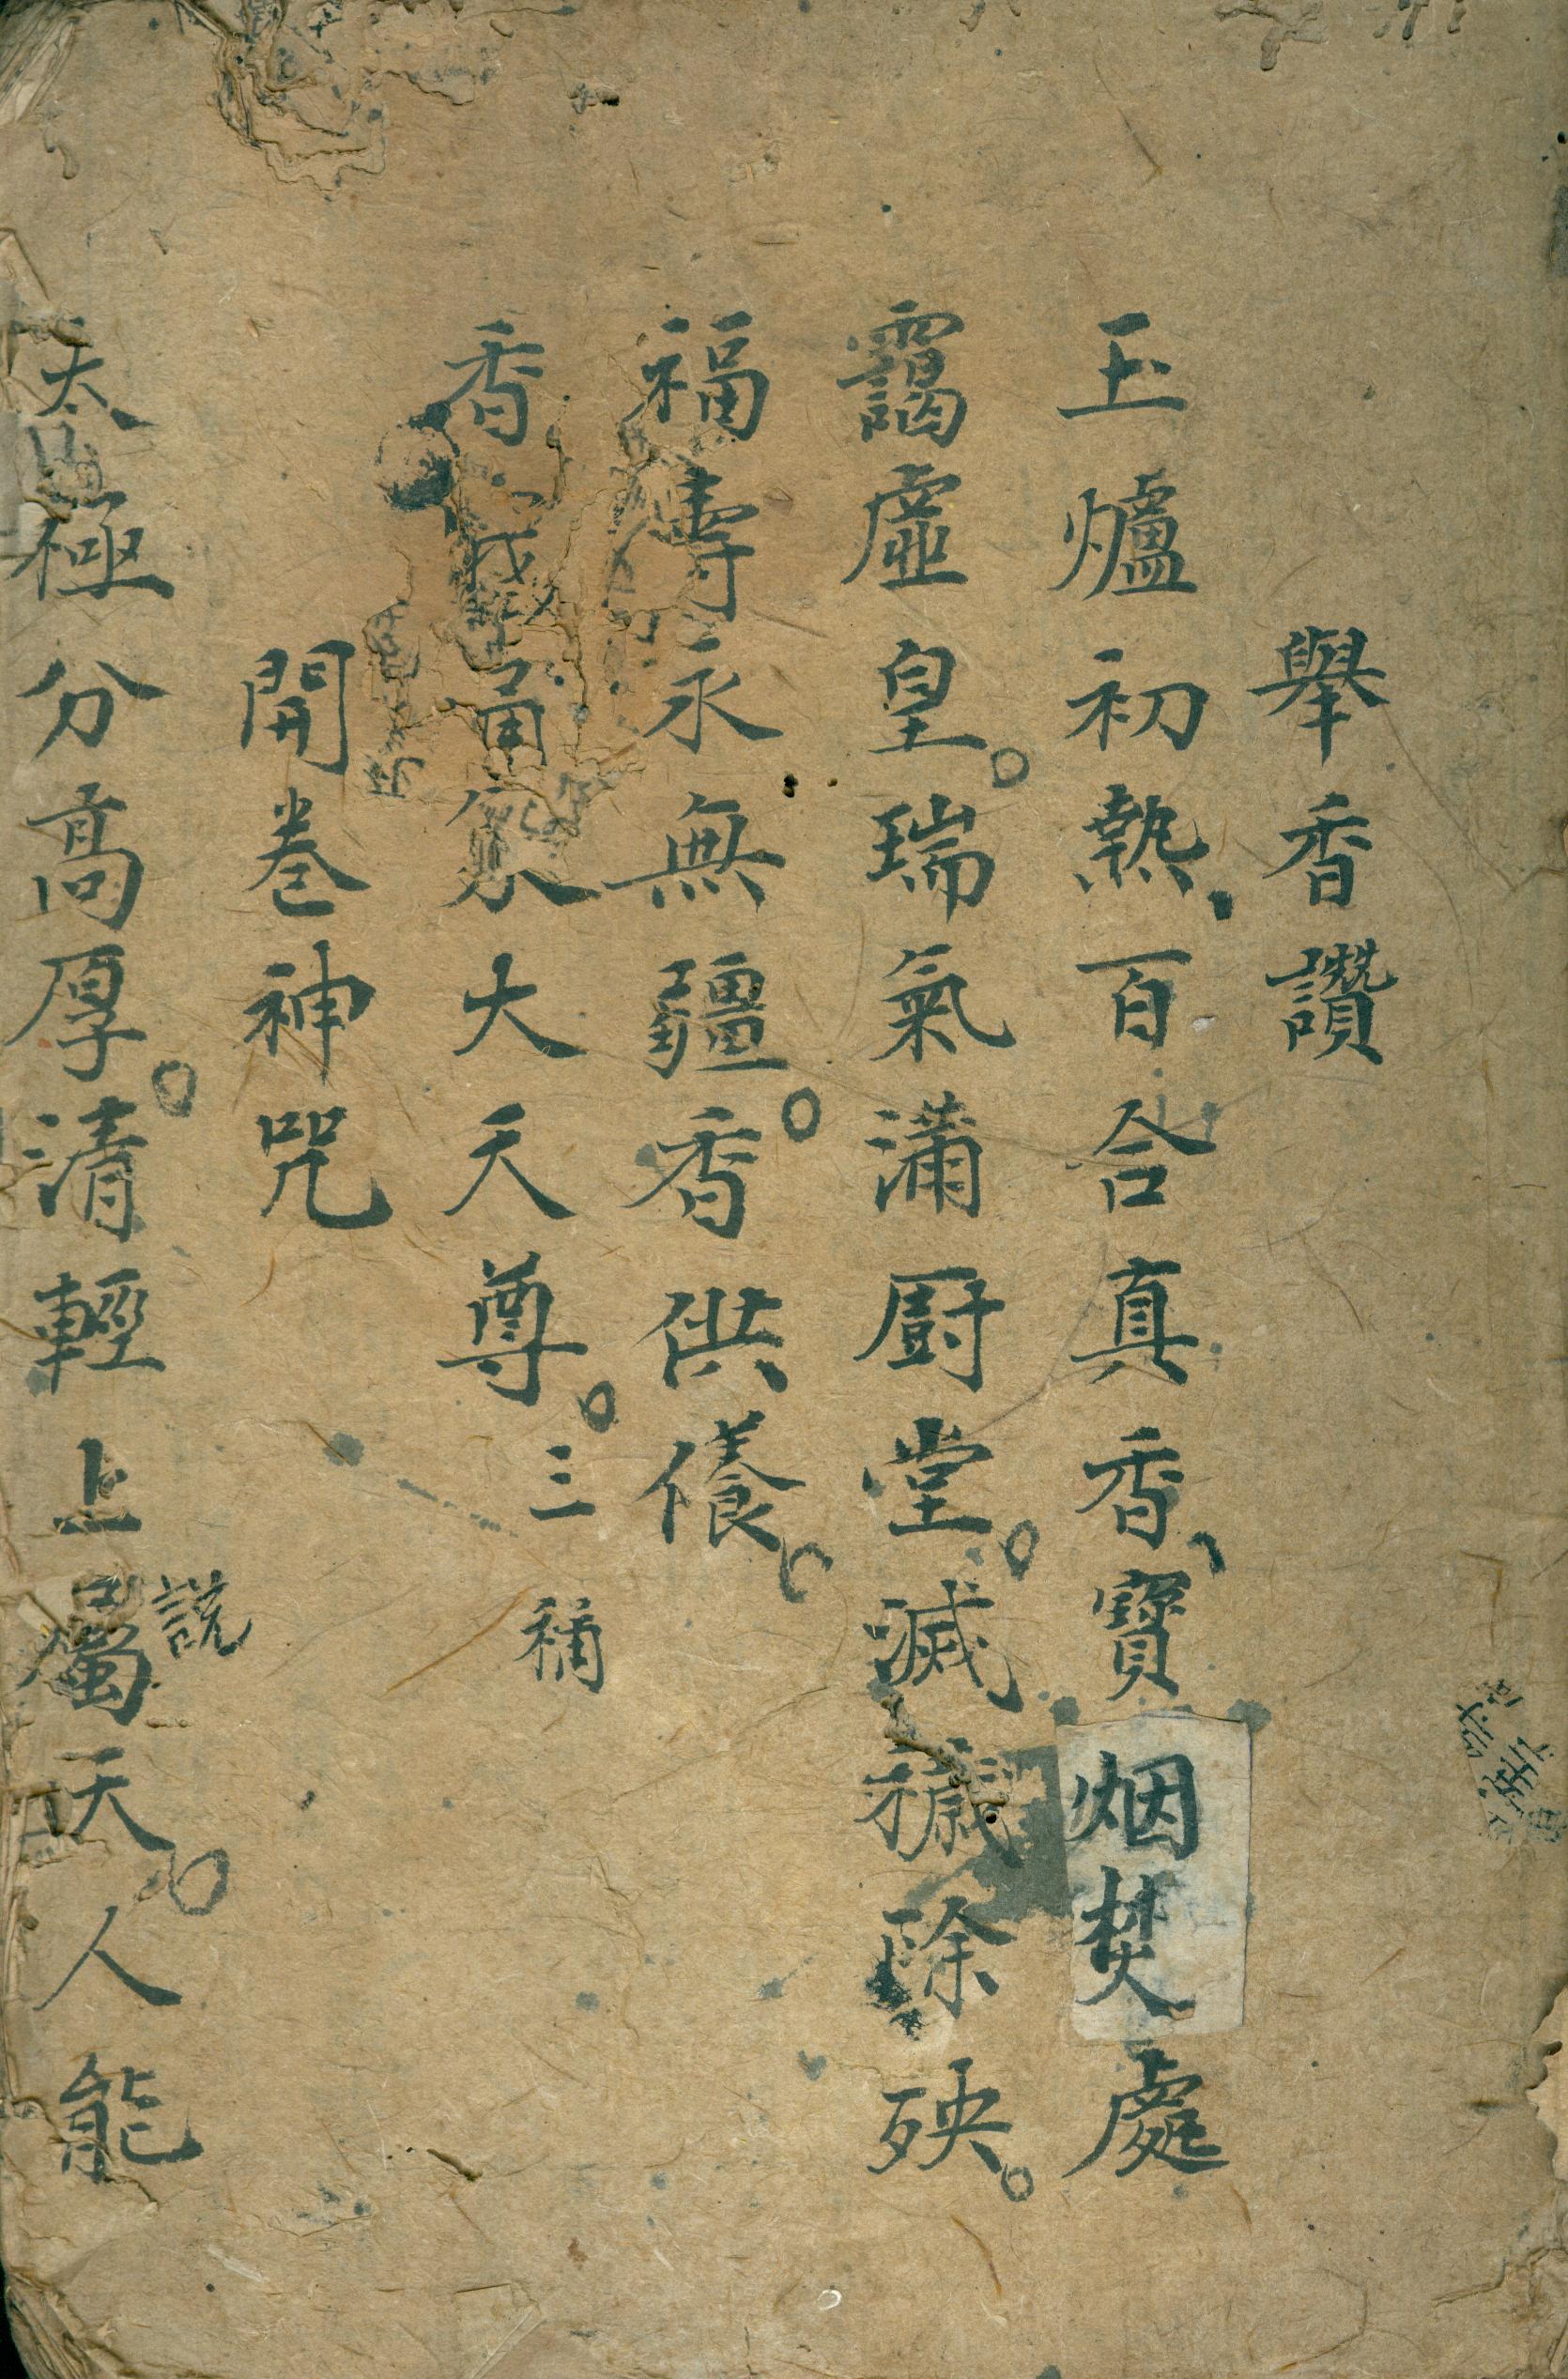 舉香讚
玉爐初熱、百合真香、寳烟焚處
靄虛皇。瑞氣滿厨堂。滅穢除殃。
福壽永無疆。香供養。
香 大天尊。三稱
開卷神咒
太極分髙厚。清輕上屬天。人能
説